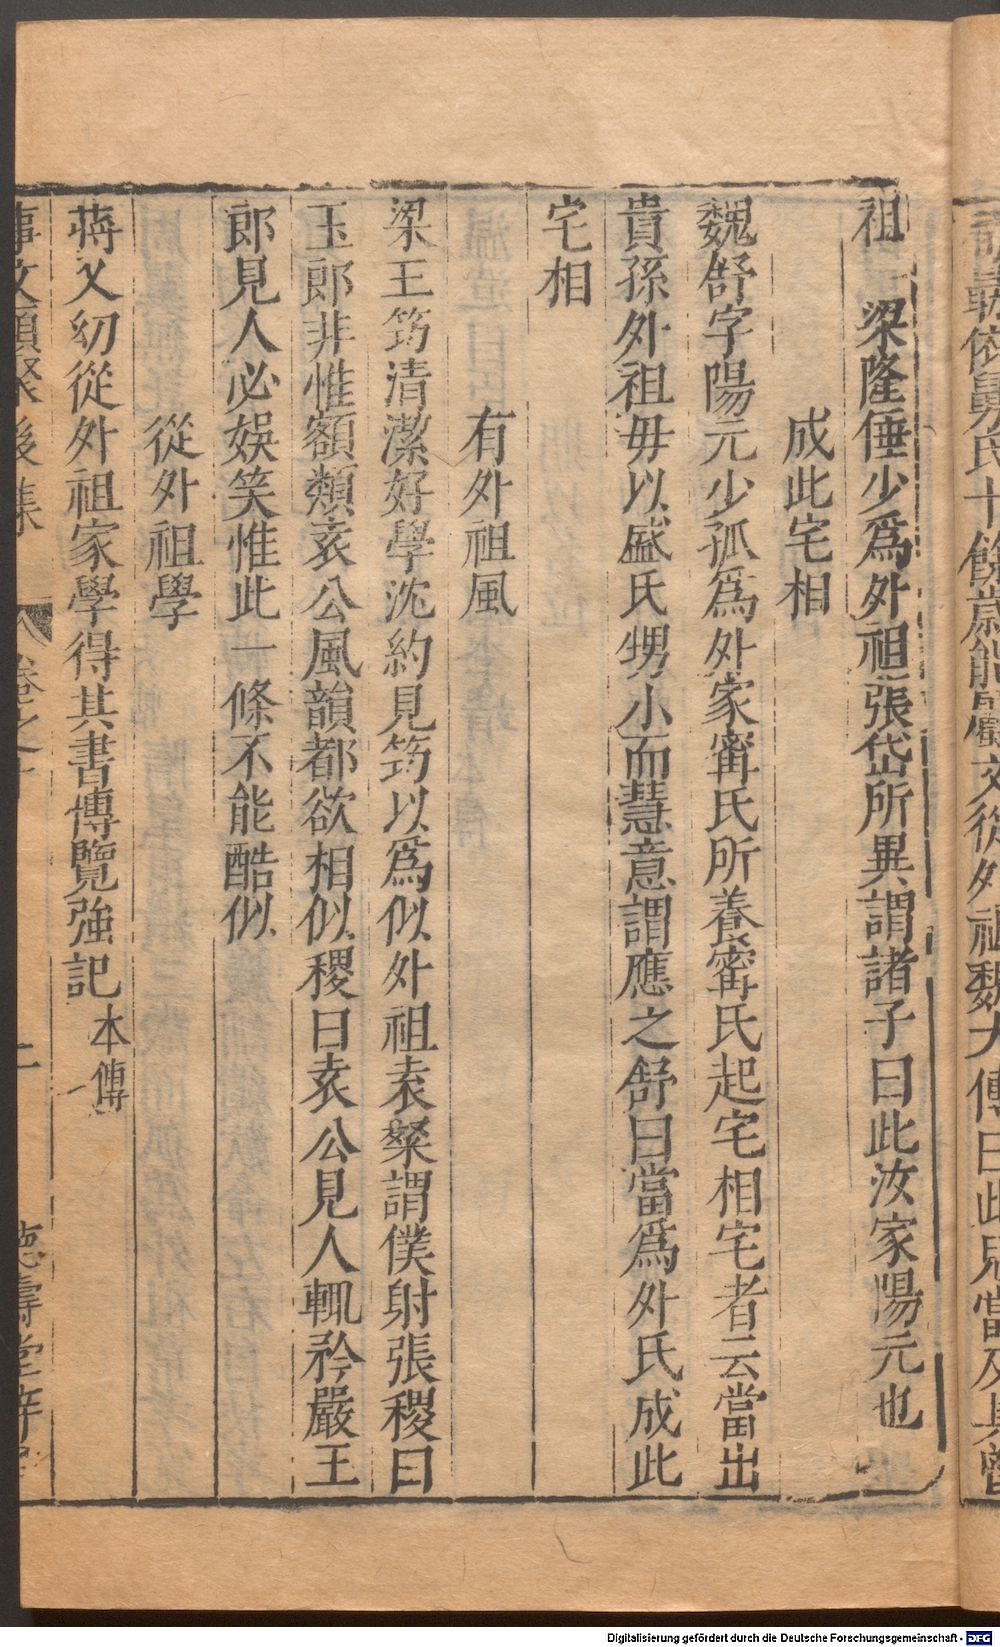 祖　梁隆倕少爲外祖張岱所異謂諸子曰此汝家陽元也
成此宅相
魏舒字陽元少孤爲外家甯氏所養甯氏起宅相宅者云當出
貴孫外祖毋以盛氏甥小而慧意謂應之舒曰當爲外氏成此
宅相
有外祖風
梁王筠清潔好學沈約見筠以爲似外祖袁粲謂僕射張稷曰
王郎非惟額類袁公風韻都欲相似稷曰袁公見人輒矜嚴王
郎見人必娛笑惟此一條不能酷似
從外祖學
蒋乂幼從外祖家學得其書博覽強記本傳
事文類聚後集　卷之十　二　德壽堂梓
Digitalisierung gefördert durch die Deutsche Forschungsgemeinschaft - DFG